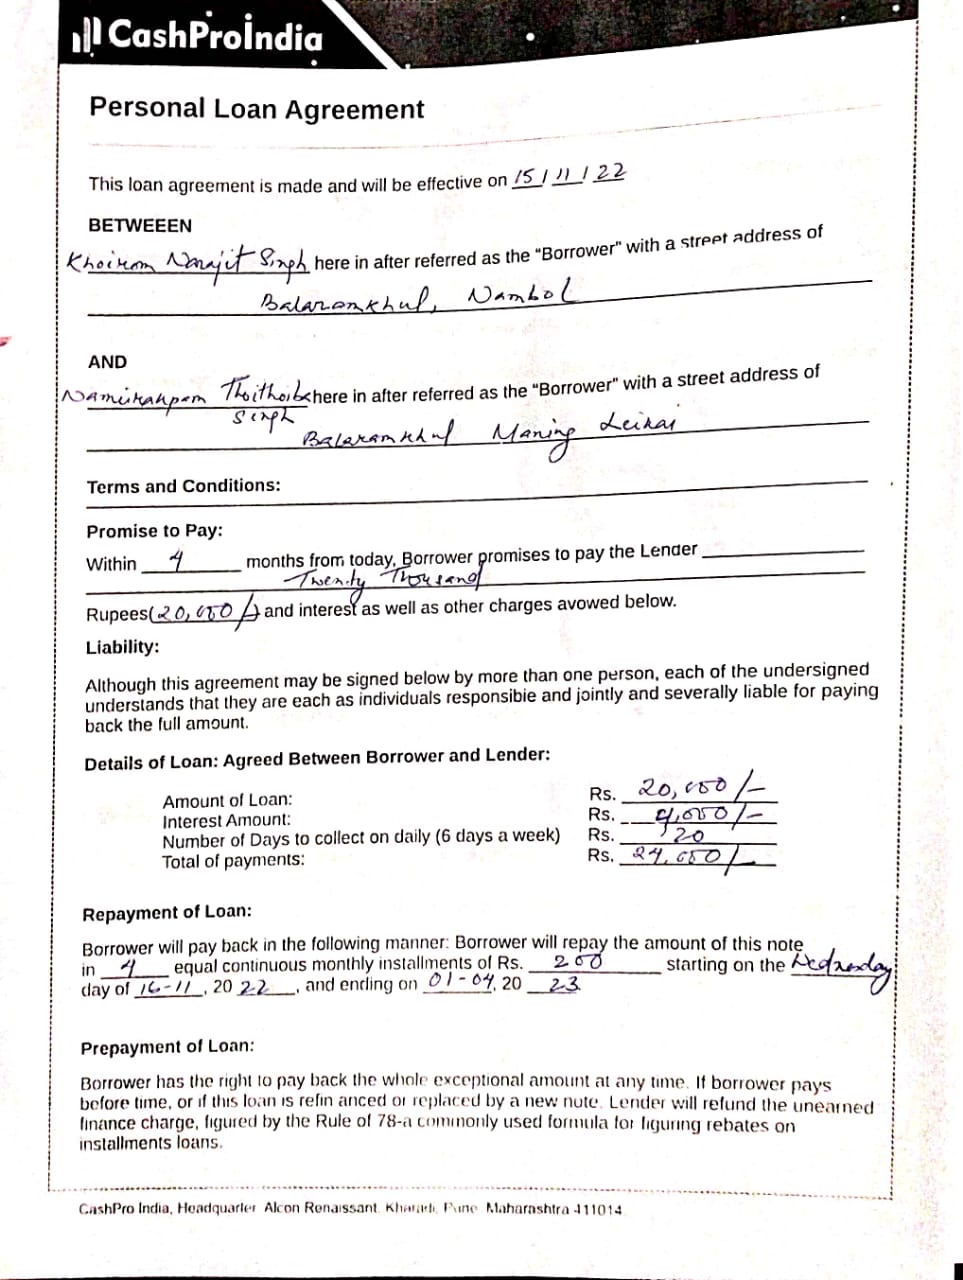 CashProIndia
Personal Loan Agreement
This loan agreement is made and will be effective on 15/11/22
BETWEEEN
Khoirom Narajit Singh here in after referred as the “Borrower” with a street address of
Balaramkhul, Nambol
AND
Thoithoiba here in after referred as the “Borrower” with a street address of
Singh
Balaramkhul Maning Leikai
Terms and Conditions:
Promise to Pay:
Within 4 months from today, Borrower promises to pay the Lender
Twenty Thousand
Rupees(20,000/-) and interest as well as other charges avowed below.
Liability:
Although this agreement may be signed below by more than one person, each of the undersigned
understands that they are each as individuals responsibie and jointly and severally liable for paying
back the full amount.
Details of Loan: Agreed Between Borrower and Lender:
Amount of Loan: Rs. 20,000/-
Interest Amount: Rs. 4,000/-
Number of Days to collect on daily (6 days a week) Rs. 120
Total of payments: Rs. 24,000/-
Repayment of Loan:
Borrower will pay back in the following manner: Borrower will repay the amount of this note
in 4 equal continuous monthly installments of Rs. 200 starting on the Wednesday
day of 16-11, 20 22, and ending on 01-04, 20 23
Prepayment of Loan:
Borrower has the right to pay back the whole exceptional amount at any time. If borrower pays
before time, or if this loan is refin anced or replaced by a new note. Lender will refund the unearned
finance charge, figured by the Rule of 78-a commonly used formula for figuring rebates on
installments loans.
CashPro India, Headquarter Alcon Renaissant, Kharadi, Pune Maharashtra 411014